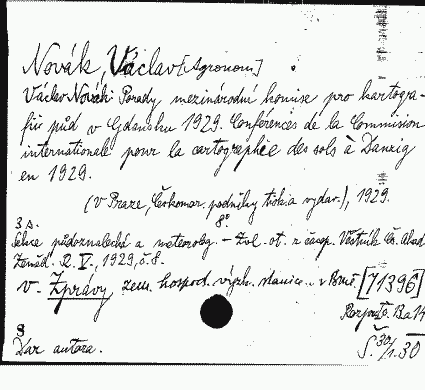 Novák, Václav [Agronom]
Václav Novák: Porady mezinárodní komise pro kartogra-
fii půd v Gdansku 1929. Conférences de la Commision
internationale pour la cartographie des sols à Danzig
en 1929.
(V Praze, Českomor. podniky tisk. a vydav.), 1929.
3 s. 8°
Sekce půdoznalecké a meteorolog. - Zvl. ot. z časop. Věstník Čs. Akad.
Zeměd. R. V., 1929, č. 8.
V. Zprávy zem. hospod. výzk. stanice v Brně [71396]
8
Dar autora.
Š. 30/1.30